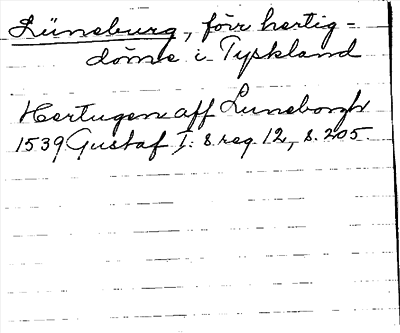 Lüneburg, förr hertig=
döme i Tyskland
Hertugen aff Luneborgh
1539 Gustaf I:s reg. 12, s. 205.